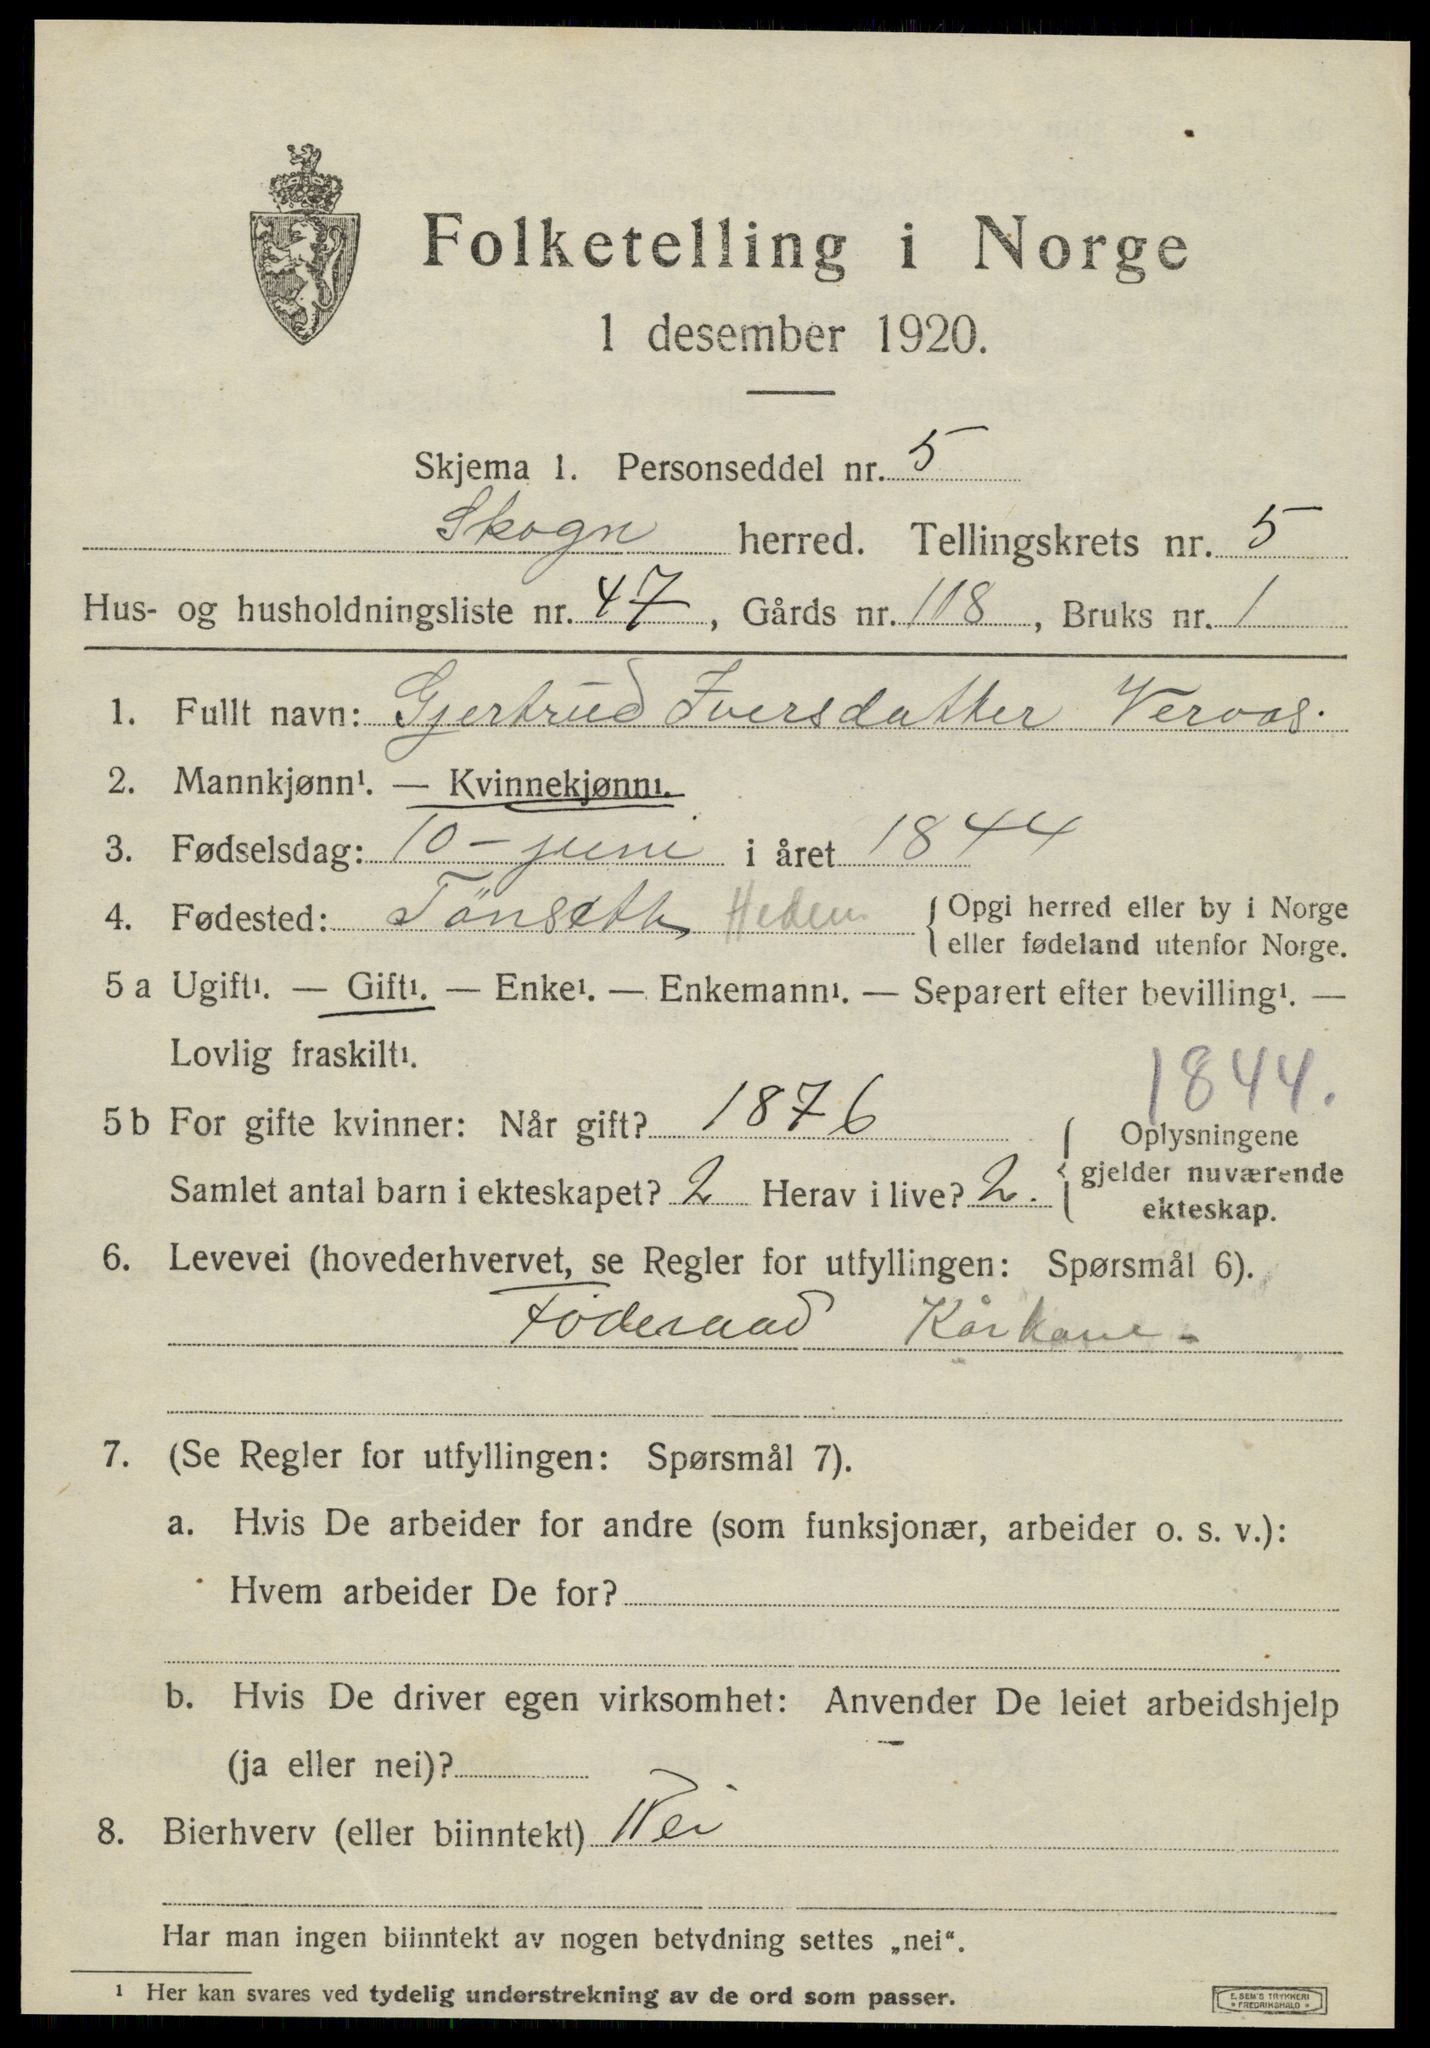 Folketelling i Norge
1 desember 1920.
Skjema 1. Personseddel nr. 5
Skogn herred. Tellingskrets nr. 5
Hus- og husholdningsliste nr. 47, Gårds nr. 118, Bruks nr. 1
1. Fullt navn: Gjertrud Iversdatter Veraas.
2. Mannkjønn¹. — Kvinnekjønn¹.
3. Fødselsdag: 10 - juni i året 1844
4. Fødested: Tönseth Hedem. { Opgi herred eller by i Norge
eller fødeland utenfor Norge.
5 a Ugift¹. — Gift¹. — Enke¹. — Enkemann¹. — Separert efter bevilling¹. —
Lovlig fraskilt¹.
1844.
5 b For gifte kvinner: Når gift? 1876
Samlet antal barn i ekteskapet? 2 Herav i live? 2.
{ Oplysningene
gjelder nuværende
ekteskap.
6. Levevei (hovederhvervet, se Regler for utfyllingen: Spørsmål 6).
Föderaad Kårkone -
7. (Se Regler for utfyllingen: Spørsmål 7).
a. Hvis De arbeider for andre (som funksjonær, arbeider o. s. v.):
Hvem arbeider De for?
b. Hvis De driver egen virksomhet: Anvender De leiet arbeidshjelp
(ja eller nei)?
8. Bierhverv (eller biinntekt) Nei
Har man ingen biinntekt av nogen betydning settes „nei“.
¹ Her kan svares ved tydelig understrekning av de ord som passer.
E. SEM'S TRYKKERI
» FREDRIKSHALD »